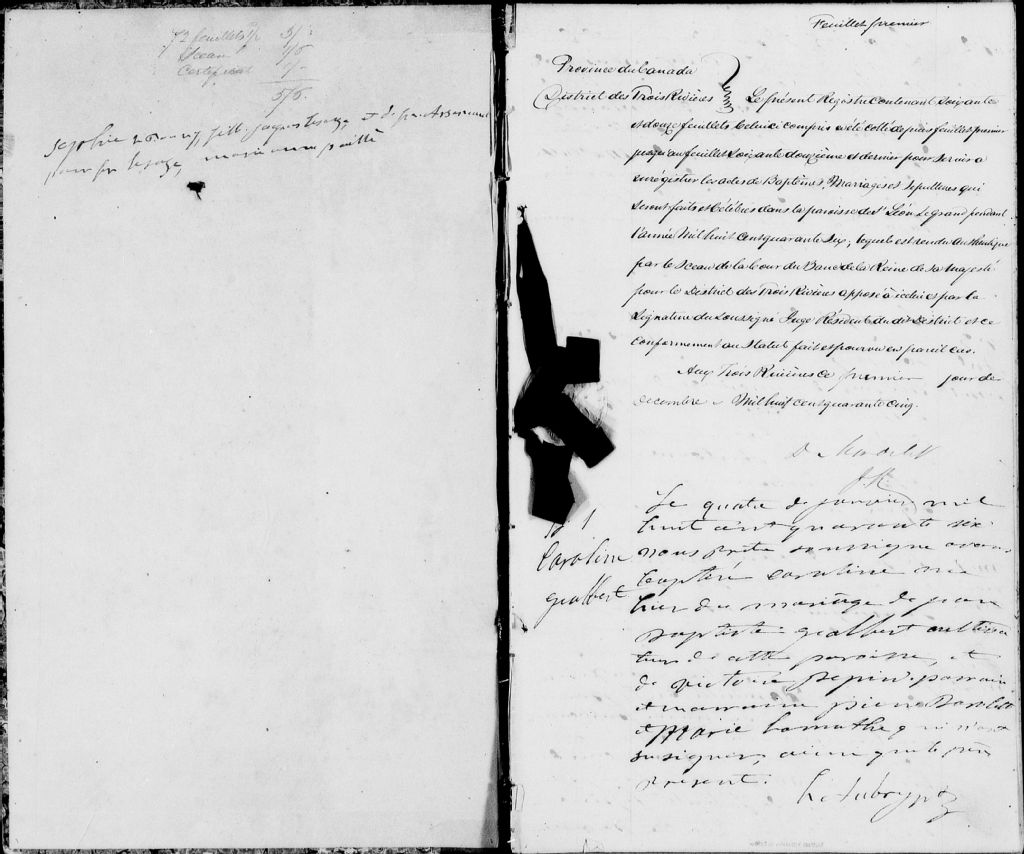 72 feuillets 3/
Sceau 1/5
Certificat 1/-
5/5.
Sophie
Feuillet premier
Province du Canada
District des Trois Rivières Le présent Registre Contenant Soixante
et douze feuillets Celui ci compris a été Cotté depuis feuillet premier
jusqu'au feuillet Soixante douzième et dernier pour Servir a
enrégistrer les actes de Baptêmes, Mariages et Sepultures qui
Seront faits et Célébrés dans la paroisse de St Léon Le Grand pendant
l'année Mil huit Cent quarante Six; lequel est rendu Authentique
par le Sceau de la Cour du Banc de la Reine de Sa Majesté
pour le District des Trois Rivières apposé à icelui et par la
Signature du Soussigné Juge Résident du dit District et ce
Conformement au Statut fait et pourvu en pareil cas.
Aux Trois Rivières Ce premier jour de
decembre Mil huit Cent quarante Cinq.
D. Mondelet
B 1
Caroline
Le quatre de janvier mil
huit cent quarante six
nous prêtre soussigné avons
baptisé caroline née
hier du mariage de jean
baptiste cultiva
teur de cette paroisse, et
de victoire parrain
et marraine pierre
et Marie Lamothe qui n'ont
su signer, ainsi que le père
présent.